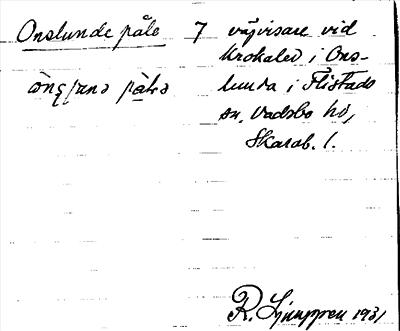 Onslunde påle 7 vägvisare vid
Krokaled i Ons-
lunda i Flistads
sn, Vadsbo hd,
Skarab. l.
R. Ljunggren 1931